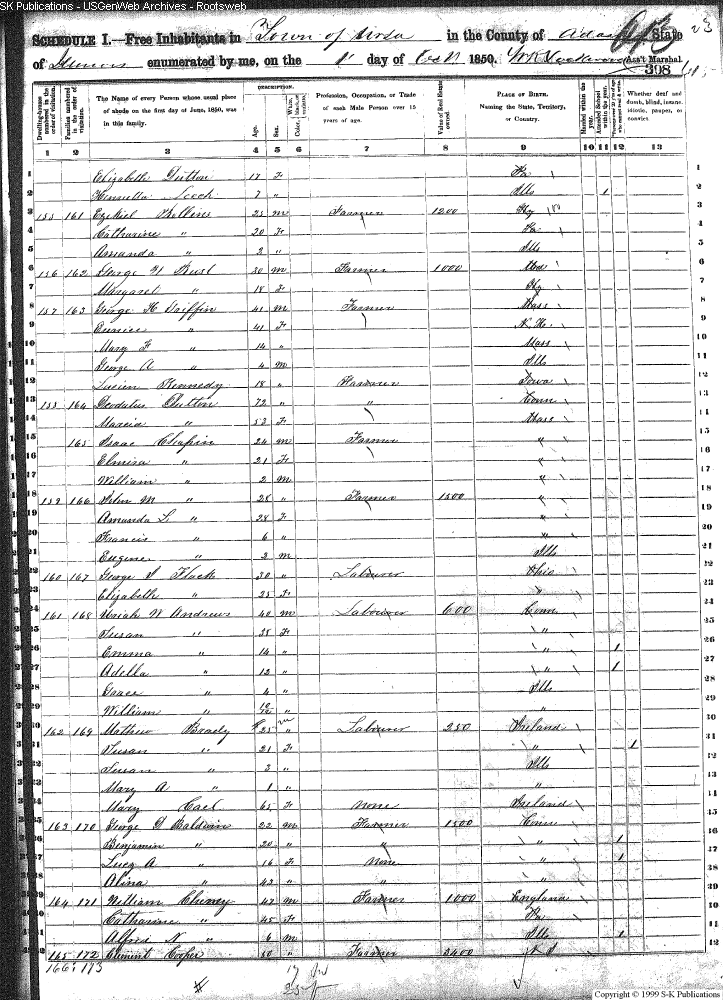 SK Publications - USGenWeb Archives - Rootsweb
SCHEDULE I.—Free Inhabitants in Town of Ursa in the County of Adams State 23
of Illinois enumerated by me, on the 1st day of Oct 1850. Ass't Marshal.
308
Dwelling-houses numbered in the order of visitation.
Families numbered in the order of visitation.
The Name of every Person whose usual place of abode on the first day of June, 1850, was in this family.
DESCRIPTION.
Age. Sex. White, black, or mulatto. Color
Profession, Occupation, or Trade of each Male Person over 15 years of age.
Value of Real Estate owned.
PLACE OF BIRTH. Naming the State, Territory, or Country.
Married within the year.
Attended School within the year.
Persons over 20 y'rs of age who cannot read & write.
Whether deaf and dumb, blind, insane, idiotic, pauper, or convict.
1 2 3 4 5 6 7 8 9 10 11 12 13
1 Elizabeth Dutton 17 F Pa
2 Henrietta 7 " Ills 1
3 155 161 Ezekiel 25 M Farmer 1200 Ky
4 Catharine " 20 F Pa
5 Amanda " 2 " Ills
6 156 162 George W Rust 30 M Farmer 1000
7 Margaret " 18 F Ky
8 157 163 George H Griffin 41 M Farmer Mass
9 Eunice " 41 F N. H.
10 Mary F " 14 " Mass
11 George A " 4 M Ills
12 Lucien Kennedy 18 " Iowa
13 Dutton 72 " " Conn
14 Marcia " 53 F Mass
15 165 Isaac Chapin 24 M Farmer "
16 Elmira " 21 F "
17 William " 2 M "
18 159 166 John M " 28 " Farmer 1500 "
19 Amanda L " 28 F "
20 Francis " 6 " "
21 Eugene " 2 M Ills
22 160 167 George Flack 30 " Labourer Ohio
23 Elizabeth " 25 F "
24 161 168 Uriah W Andrews 40 M Labourer 600 Conn
25 Susan " 38 F "
26 Emma " 14 " " 1
27 Adella " 12 " " 1
28 Grace " 4 " Ills
29 William " "
30 162 169 Mathew Brady 25 M Labourer 250 Ireland
31 Susan " 21 F " 1
32 Susan " 3 " Ills
33 Mary A " 1 " "
34 Mary 65 F None Ireland
35 163 170 George D Baldwin 22 M Farmer 1500 Conn
36 Benjamin " 20 " " " 1
37 Lucy A " 16 F None " 1
38 " 43 " "
39 164 171 William Cheney 47 M Farmer 1000 England
40 Catharine " 45 F Pa
41 Alfred N " 6 M Ills 1
42 165 172 Clement Cooper 50 " Farmer
166, 173
Copyright © 1999 S-K Publications